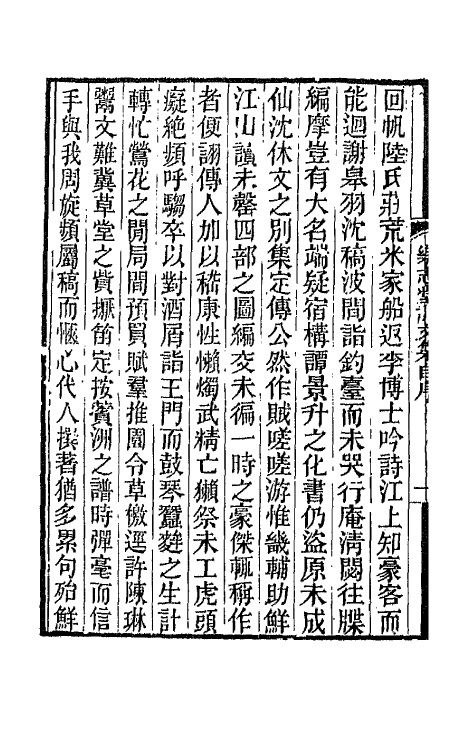 回帆陸氏莊荒米家船返李博士吟詩江上知豪客而
能迴謝皋羽沈稿波間詣釣臺而未哭行庵淸閟往牒
編摩豈有大名端疑宿構譚景升之化書仍盜原未成
仙沈休文之別集定傳公然作賊嗟嗟游惟畿輔助鮮
江山讖未罄四部之圖編交未徧一時之豪傑輒稱作
者便詡傳人加以嵇康性懶燭武精亡獺祭未工虎頭
癡絶頻呼騶卒以對酒屑詣王門而鼓琴蠶麰之生計
轉忙鶯花之閒局間預買賦羣推園令草檄逕許陳琳
鬻文難冀草堂之貲摭笛定按蘋洲之譜時彈毫而信
手與我周旋頻屬稿而愜心代人撰著猶多累句殆鮮
自序